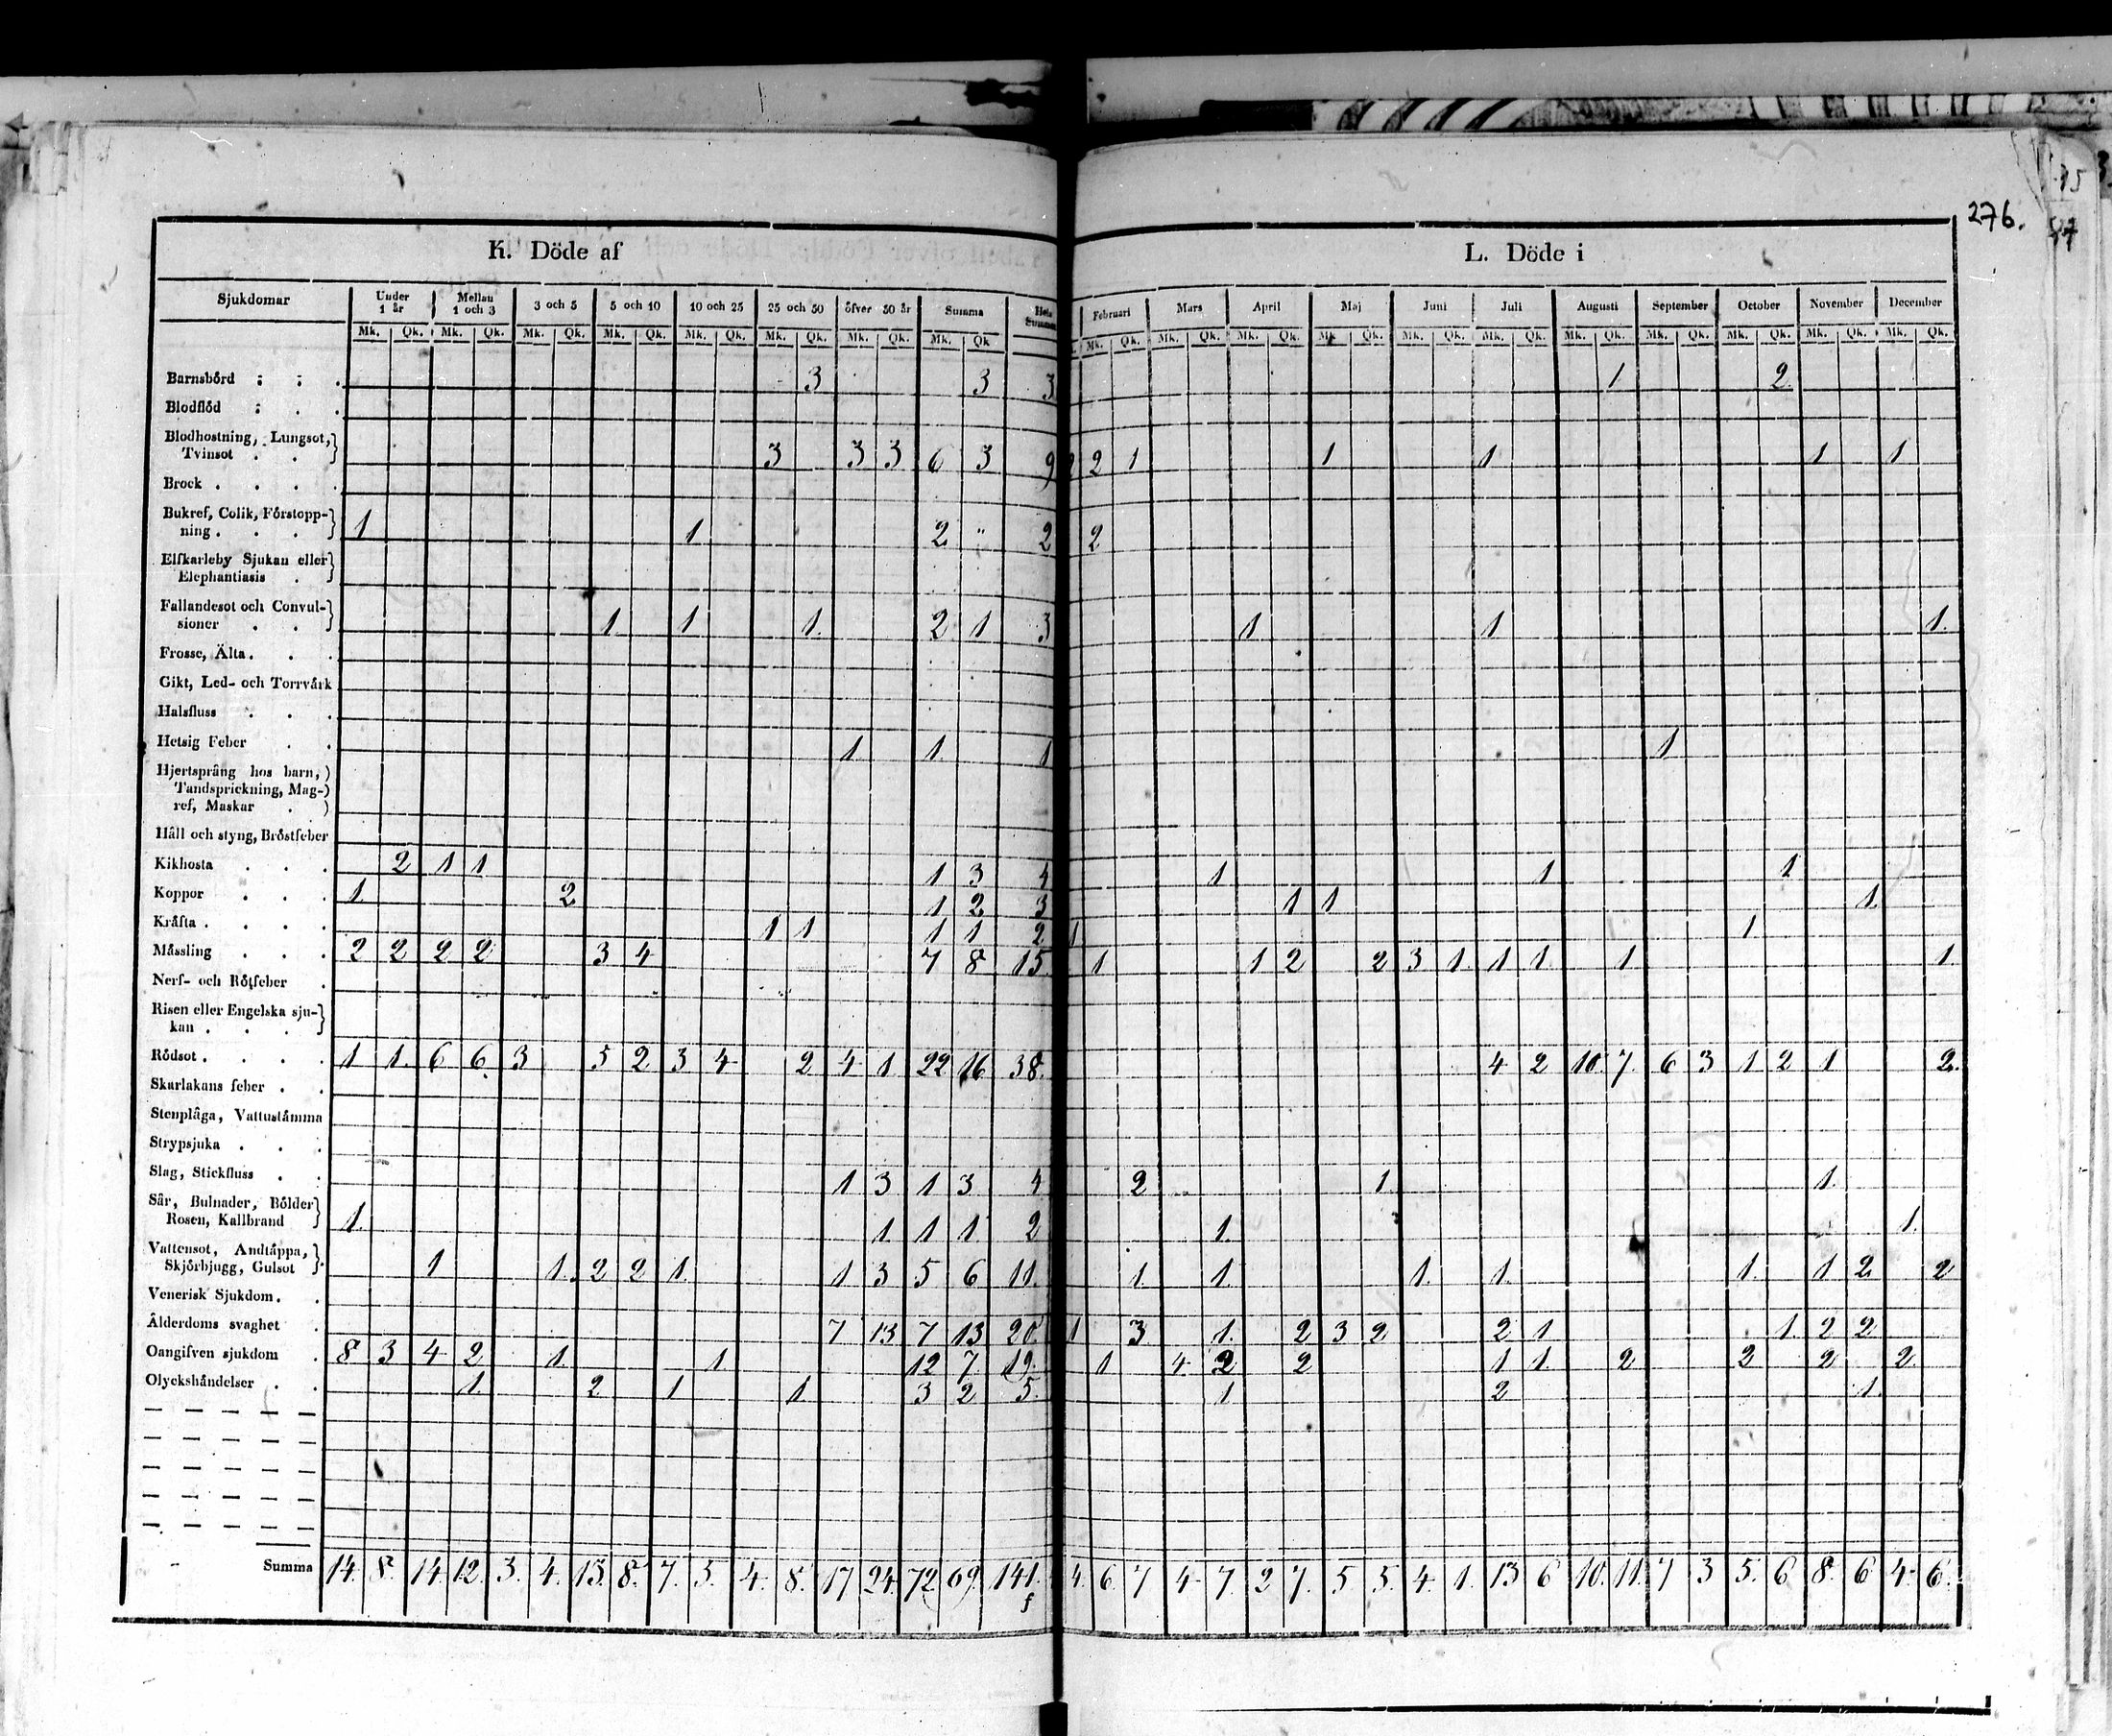 276.
K. Döde af
L. Döde i
Sjukdomar Under 1 år Mellan 1 och 3 3 och 5 5 och 10 10 och 25 25 och 50 öfver 50 år Summa Hela Summan Februari Mars April Maj Juni Juli Augusti September October November December
Mk. Qk. Mk. Qk. Mk. Qk. Mk. Qk. Mk. Qk. Mk. Qk. Mk. Qk. Mk. Qk Mk. Qk. Mk. Qk. Mk. Qk. Mk. Qk. Mk. Qk. Mk. Qk. Mk. Qk. Mk. Qk. Mk. Qk. Mk. Qk. Mk. Qk.
Barnsbörd 3 3 3 1 2
Blodflöd
Blodhostning, Lungsot,
Tvinsot 3 3 3 6 3 9 2 2 1 1 1 1 1
Brock
Bukref, Colik, Förstopp-
ning 1 1 2 " 2 2
Elfkarleby Sjukan eller
Elephantiasis
Fallandesot och Convul-
sioner 1 1 1 2 1 3 1 1 1
Frosse, Älta
Gikt, Led- och Torrvärk
Halsfluss
Hetsig Feber 1 1 1 1
Hjertsprång hos barn,
Tandsprickning, Mag-
ref, Maskar
Håll och styng, Bröstfeber
Kikhosta 2 1 1 1 3 4 1 1 1
Koppor 1 2 1 2 3 1 1 1
Kräfta 1 1 1 1 2 1 1
Mässling 2 2 2 2 3 4 7 8 15 1 1 2 2 3 1 1 1 1 1
Nerf- och Rötfeber
Risen eller Engelska sju-
kan
Rödsot 1 1 6 6 3 5 2 3 4 2 4 1 22 16 38 4 2 10 7 6 3 1 2 1 2
Skarlakans feber
Stenplåga, Vattustämma
Strypsjuka
Slag, Stickfluss 1 3 1 3 4 2 1 1
Sår, Bulnader, Bölder
Rosen, Kallbrand 1 1 1 1 2 1 1
Vattensot, Andtäppa,
Skjörbjugg, Gulsot 1 1 2 2 1 1 3 5 6 11 1 1 1 1 1 1 2 2
Venerisk Sjukdom
Ålderdoms svaghet 7 13 7 13 20 1 3 1 2 3 2 2 1 1 2 2
Oangifven sjukdom 8 3 4 2 1 1 12 7 19 1 4 2 2 1 1 2 2 2 2
Olyckshändelser 1 2 1 1 3 2 5 1 2 1
Summa 14. 8. 14. 12. 3. 4. 13. 8. 7. 5. 4. 8. 17 24. 72 69. 141. 4. 6. 7 4 7. 2 7. 5 5. 4. 1. 13 6 10. 11. 7 3 5. 6 8. 6 4. 6.